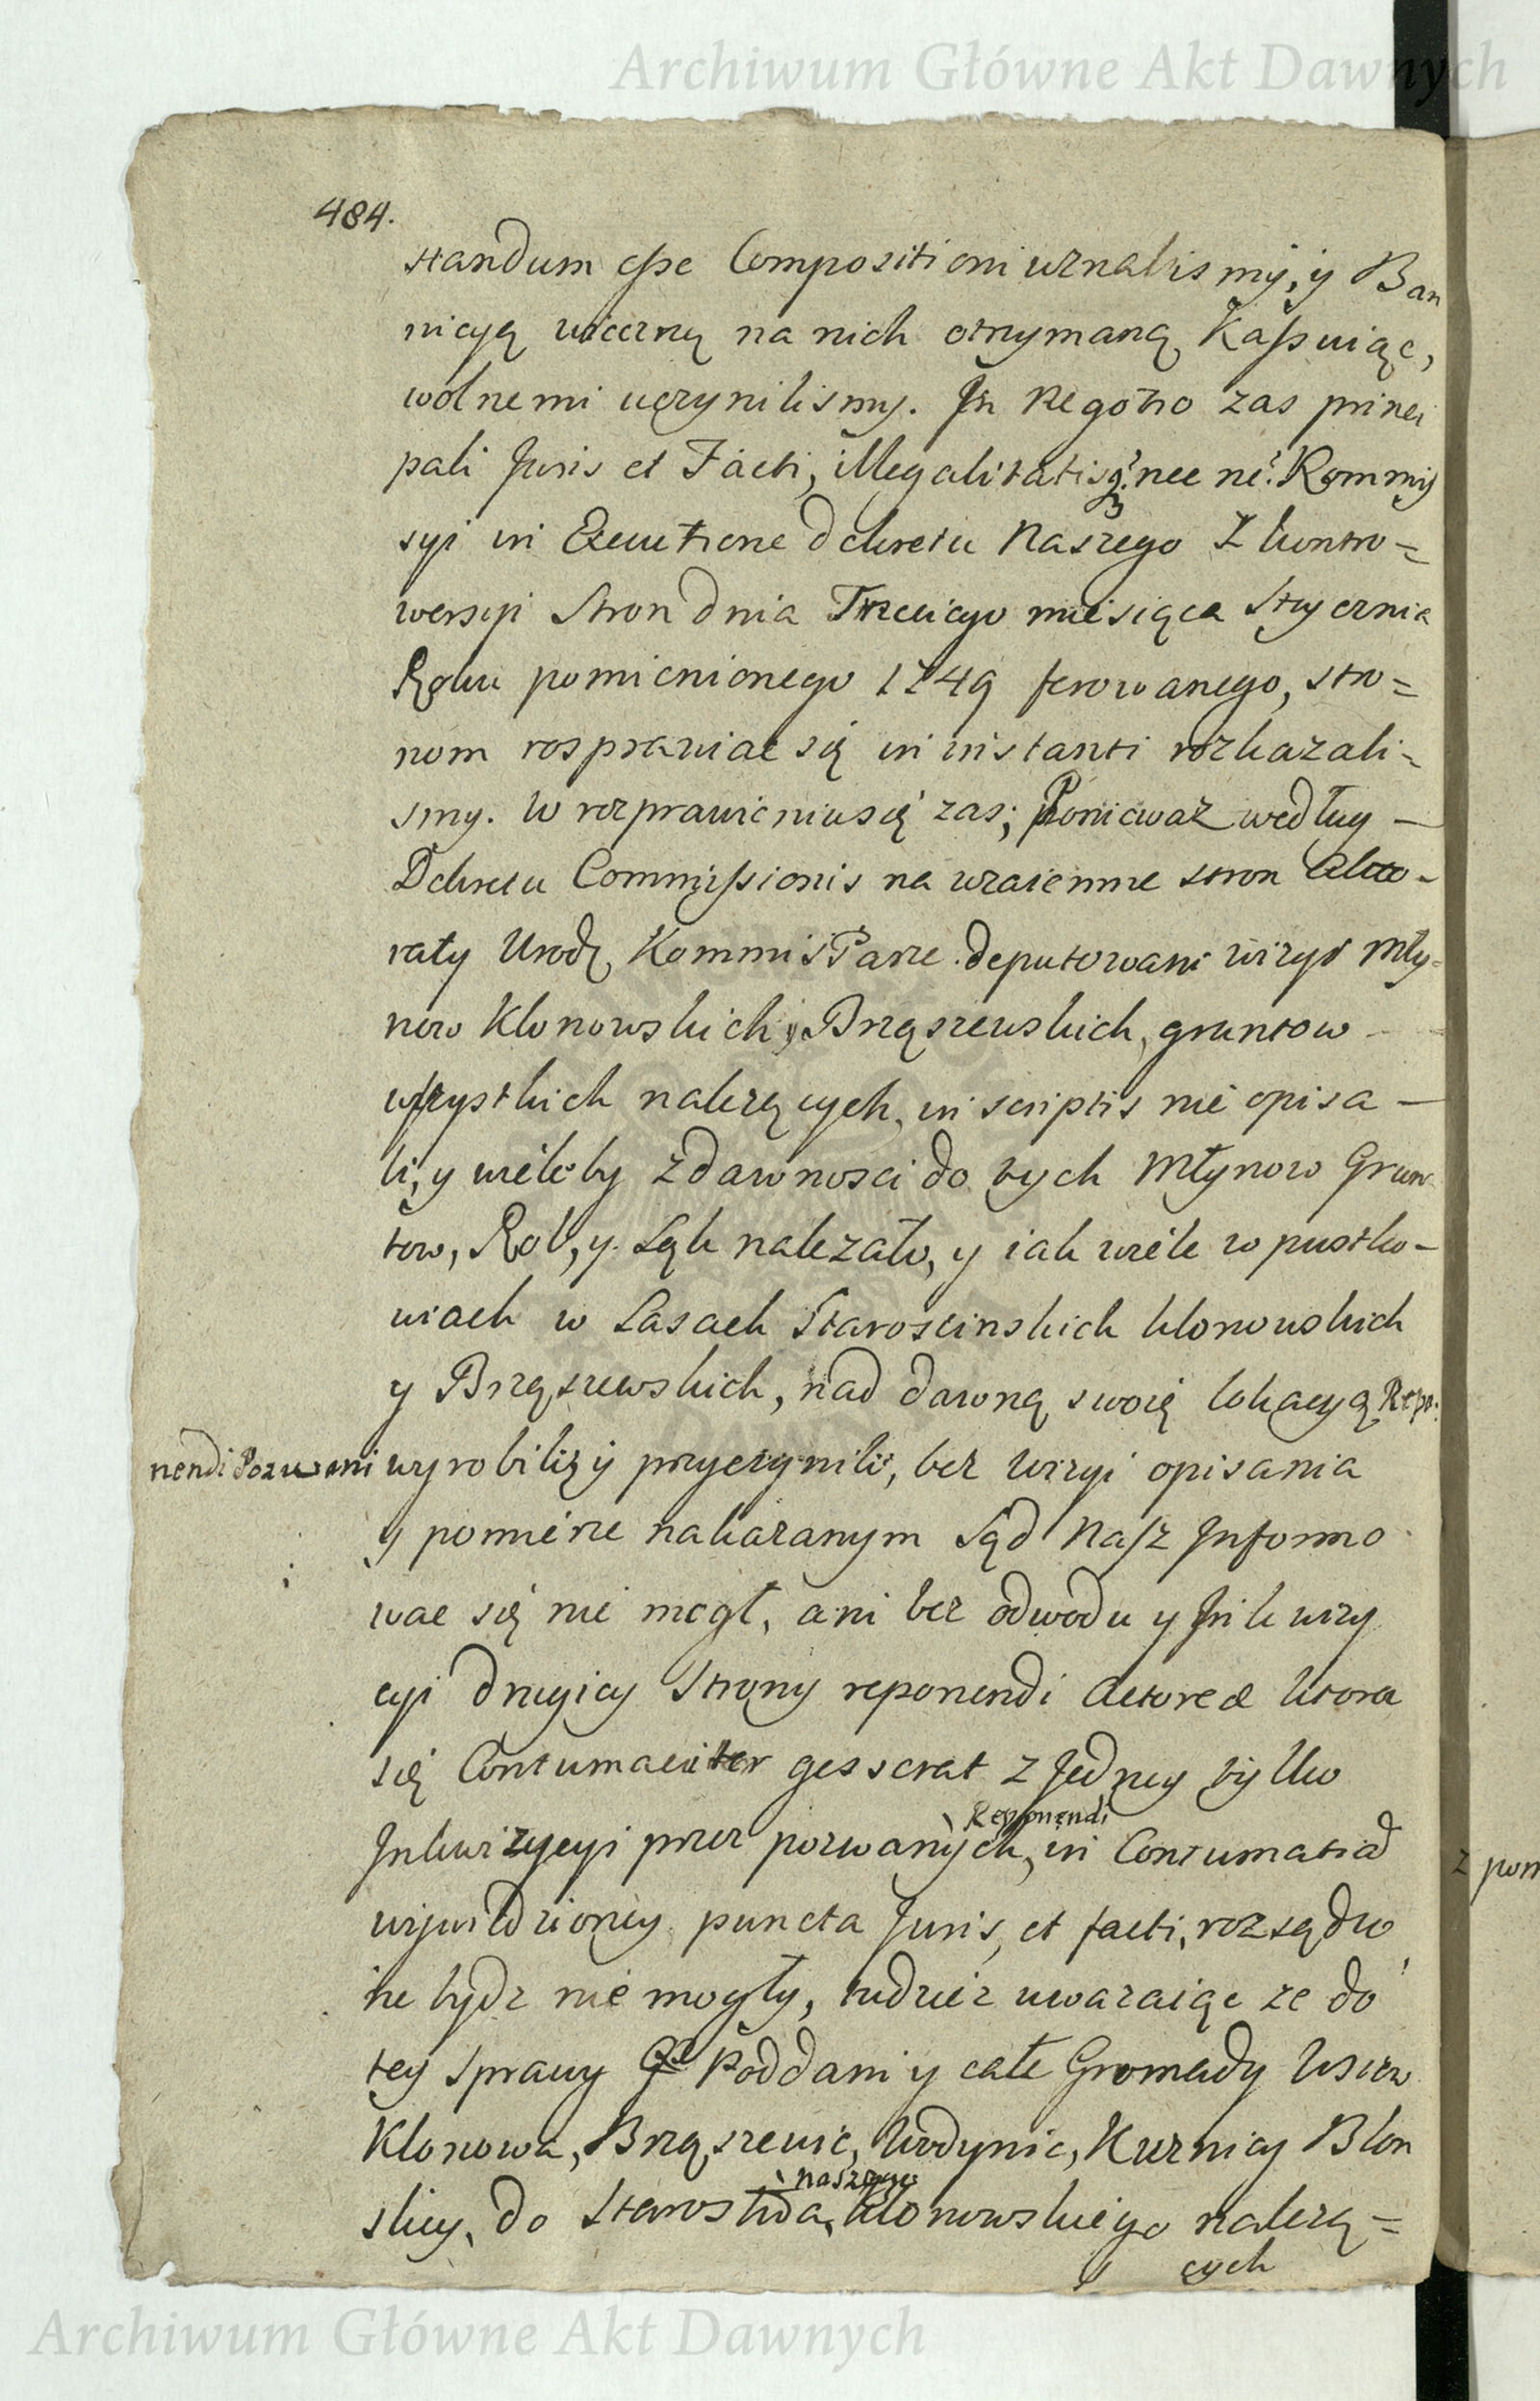 Archiwum Główne Akt Dawnych
484.
standum esse Compositioni uznalismy, y Ban
nicyą wieczną na nich otrzymaną Kassuiąc,
wolnemi uczynilismy. In Negotio zas princi
pali Juris et Facti, illegalitatisq. nec ne? Kommis
syi in Executione Dekretu Naszego z kontro=
wersyi Stron dnia Trzeciego miesiąca Stycznia
Roku pomienionego 1749 ferowanego, stro=
nom rosprawiac się in instanti rozkazali=
smy. W rozprawieniu się zas; Poniewaz według —
Dekretu Commissionis na wzaiemne stron
raty Urodz. Kommissarze deputowani wizyi Mły=
now Klonowskich y Brząszewskich, gruntow
wszystkich nalezących, in scriptis nie opisa —
li, y wiele by zdawnosci do tych Młynow Grun
tow, Rol, y Łąk nalezało, y iak wiele w pustko—
wiach w Lasach Staroscinskich Klonowskich
y Brząszewskich, nad dawną swoię lokacyą Repo.
nendi Pozwani wyrobili, y przyczynili, bez wizyi opisania
y pomierze nakazanym Sąd Nasz Informo
wac się nie mogł, ani bez odwodu y Inkwizy
cyi drugiey Strony reponendi Actorea ktora
się Contumaciter gesserat z Jedney tylko
Reponendi
Inkwizycyi przez pozwanych, in Contumatia
wywiedzioney puncta Juris, et facti, rozsądzo
ne bydz nie mogły, tudziez uwazaiąc ze do
tey Sprawy Poddani y całe Gromady Wsiow
Klonowa, Brząszewic, Wodynic, Kuznicy Błon
naszego
skiey, do Starostwa, Klonowskiego nalezą=
cych
z pom
Archiwum Główne Akt Dawnych